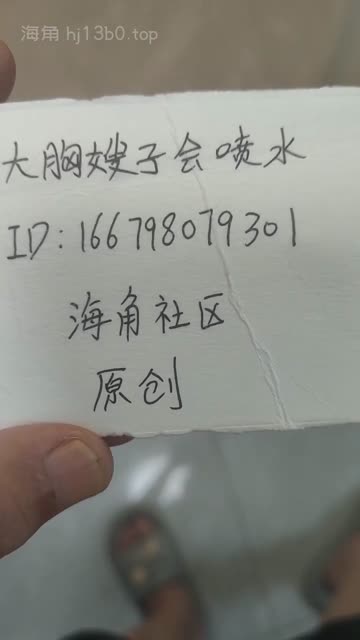 海角 hj13b0.top
大胸嫂子会喷水
ID:166798079301
海角社区
原创